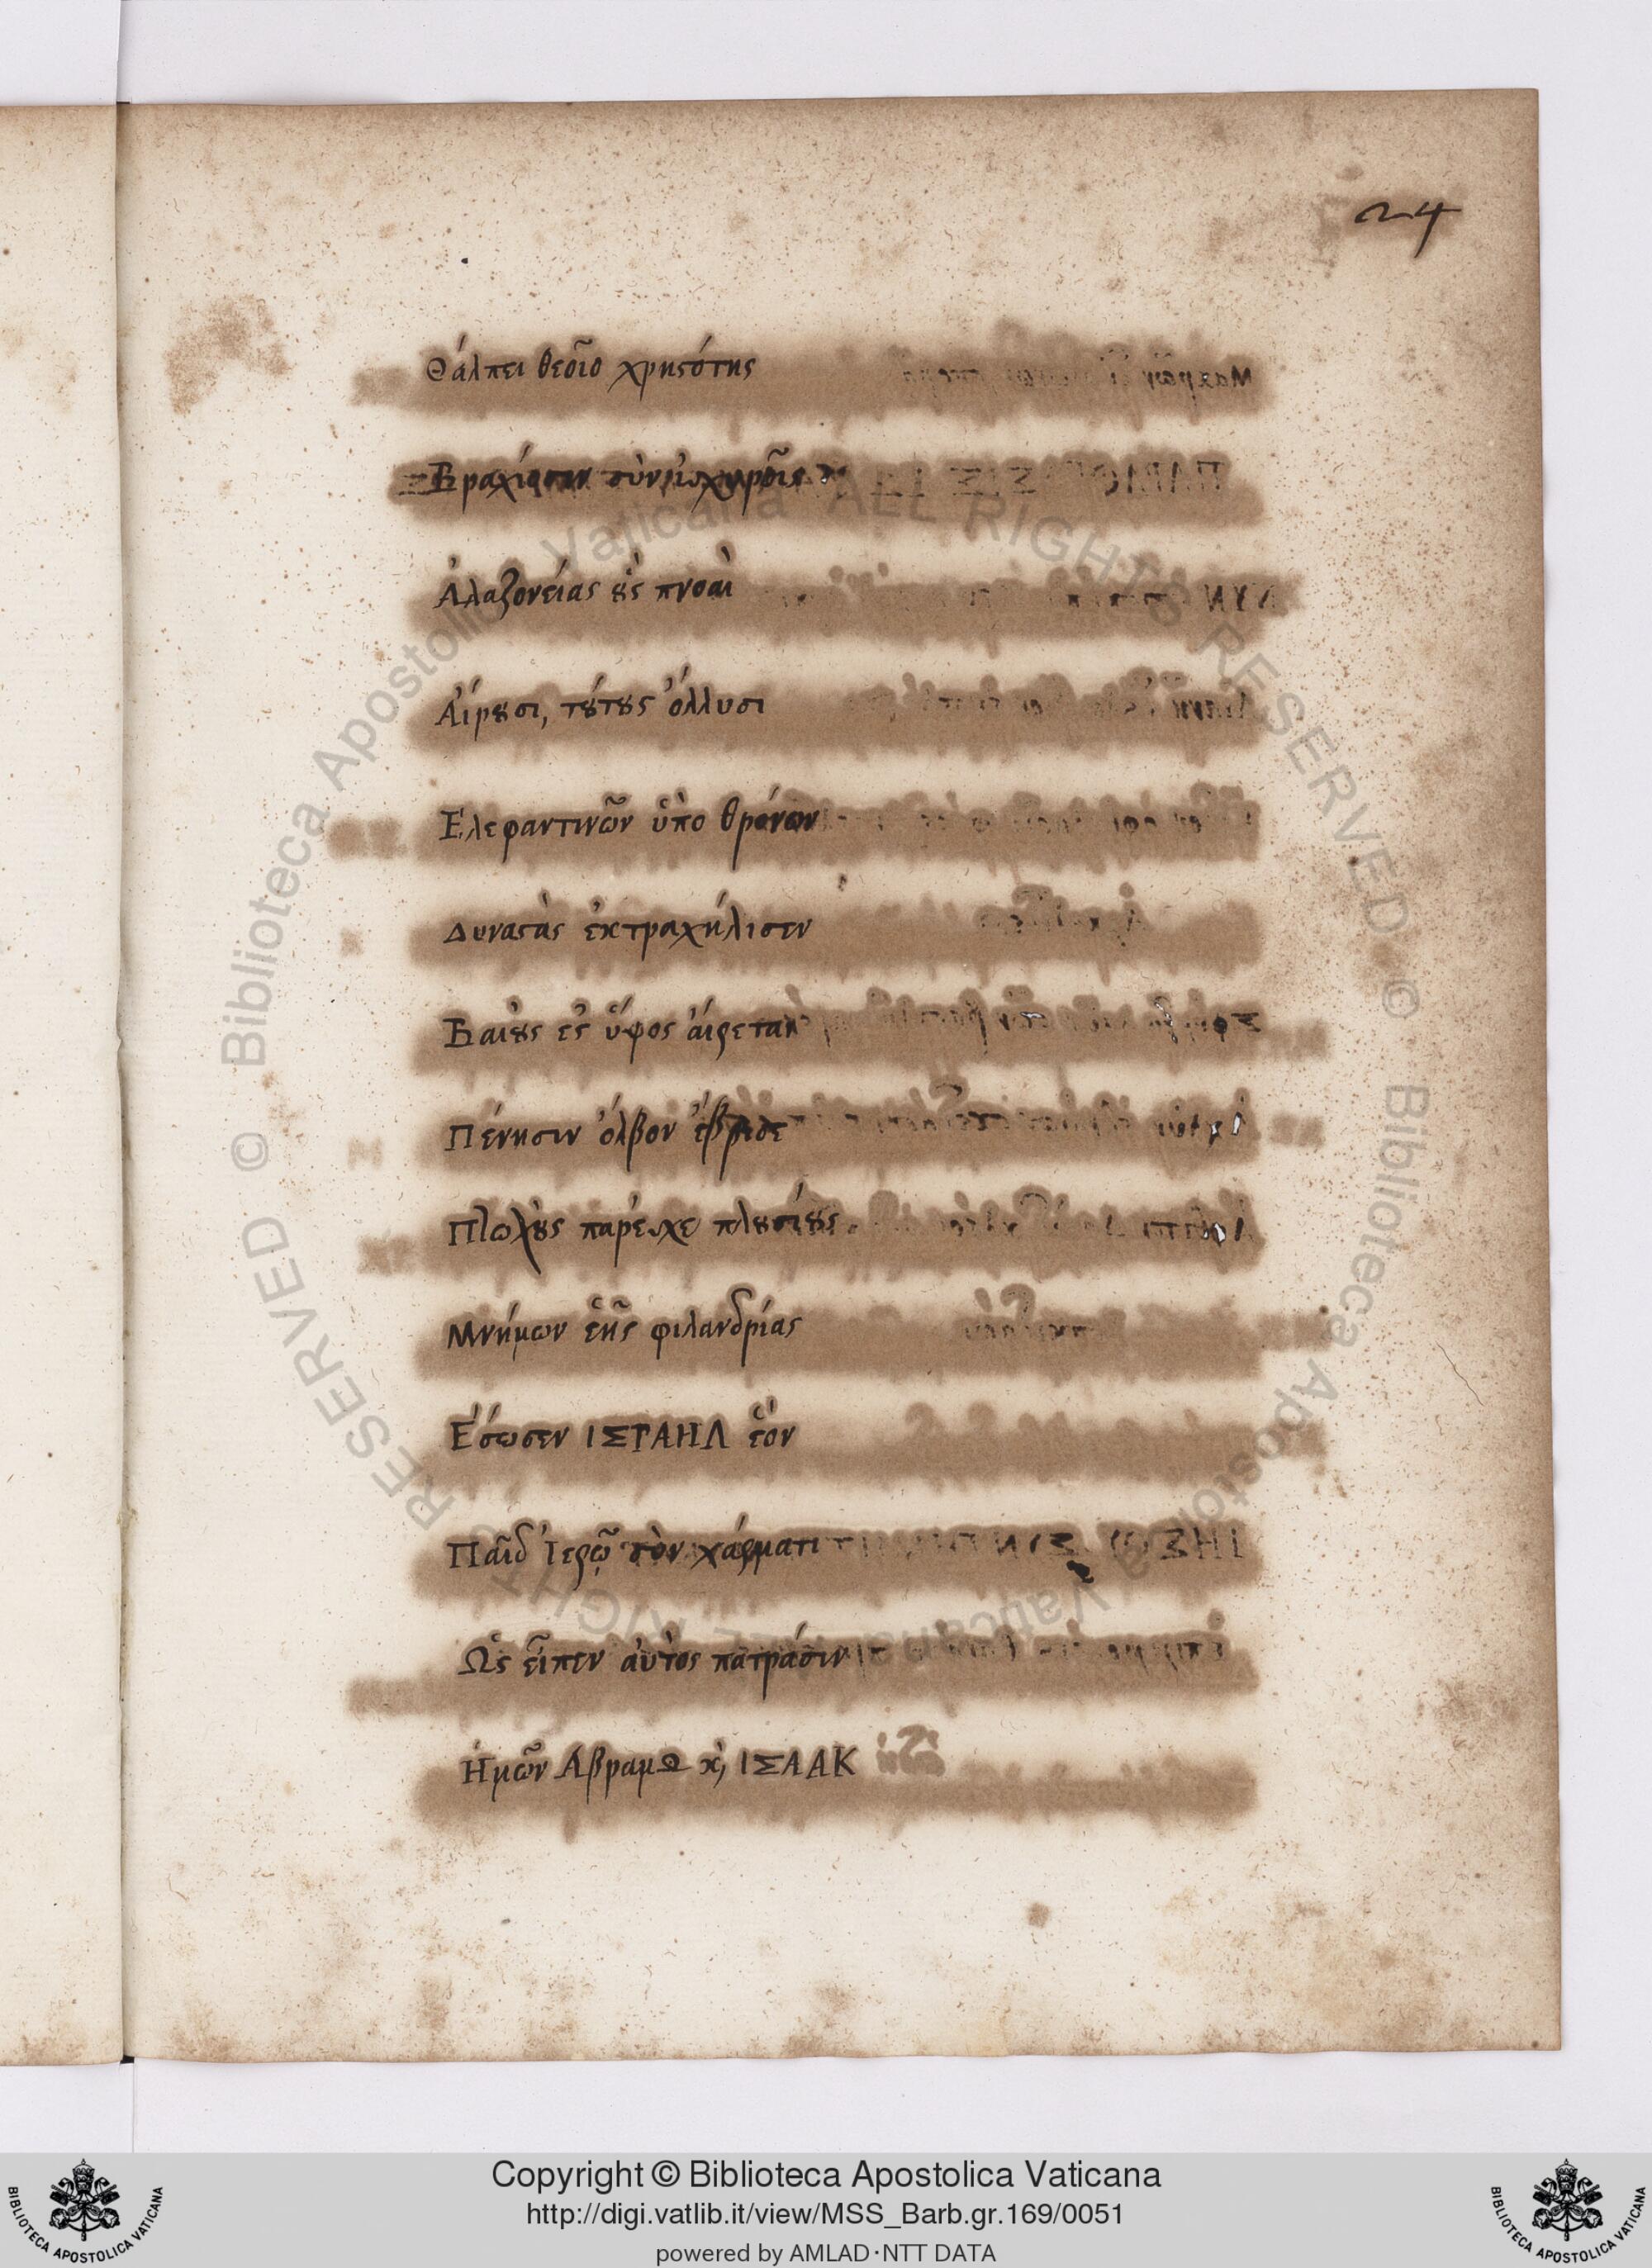 24
Θάλπει θεοῖο χρηϛότης
Βραχίοσιν σὺν ἰσχυροῖς
Ἀλαζονείας ȣ̔́ς πνοαὶ
Ἀίρȣσι, τȣ́τȣς ὄλλυσι
Ἐλεφαντινῶν ὑπὸ θρόνων
Δυναϛὰς ἐκτραχήλισεν
Βαιȣ̓ς ἐς ὕψος ἀίρεται
Πένησιν ὄλβον ἔβρισε
Πτωχȣ̀ς παρέσχε πλȣσίȣς
Μνήμων ἑῆς φιλανδρίας
Ἔσωσεν ΙΣΡΑΗΛ ἑόν
Παῖδ Ἱερῷ σὺν χάρματι
Ὡς εἶπεν αὐτὸς πατράσιν
Ἡμῶν ΑβραμΩ ϗ, ΙΣΑΑΚ
Copyright © Biblioteca Apostolica Vaticana
http://digi.vatlib.it/view/MSS_Barb.gr.169/0051
powered by AMLAD·NTT DATA
BIBLIOTECA APOSTOLICA VATICANA
BIBLIOTECA APOSTOLICA VATICANA
© Biblioteca Apostolica Vaticana ALL RIGHTS RESERVED © Biblioteca Apostolica Vaticana ALL RIGHTS RESERVED